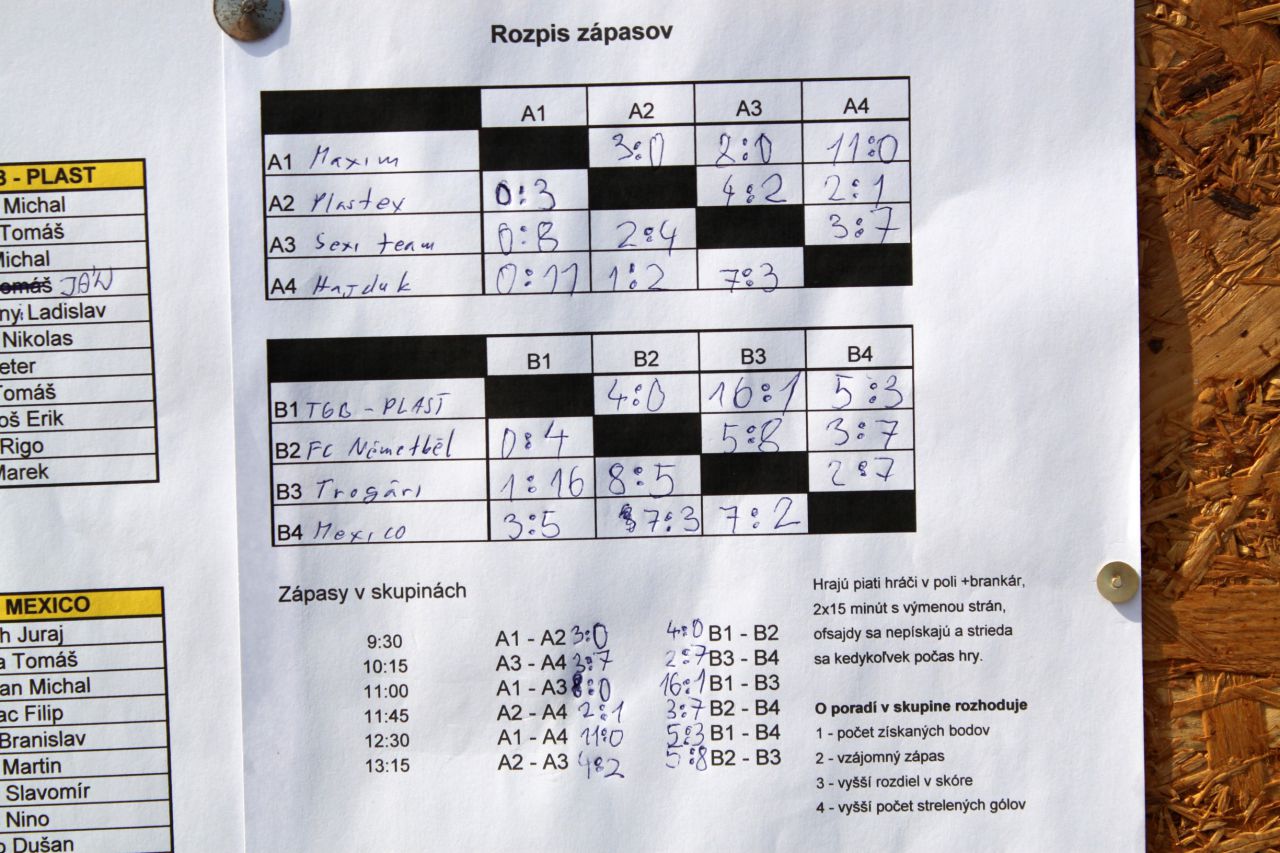 Rozpis zápasov
A1 A2 A3 A4
A1 Maxim 3:0 2:0 11:0
A2 Plastex 0:3 4:2 2:1
A3 Sexi team 0:8 2:4 3:7
A4 Hajduk 0:11 1:2 7:3
B1 B2 B3 B4
B1 TGB - PLAST 4:0 16:1 5:3
B2 FC Németběl 0:4 5:8 3:7
B3 Trogári 1:16 8:5 2:7
B4 Mexico 3:5 7:3 7:2
Zápasy v skupinách
9:30 A1 - A2 3:0 4:0 B1 - B2
10:15 A3 - A4 3:7 2:7 B3 - B4
11:00 A1 - A3 8:0 16:1 B1 - B3
11:45 A2 - A4 2:1 3:7 B2 - B4
12:30 A1 - A4 11:0 5:3 B1 - B4
13:15 A2 - A3 4:2 5:8 B2 - B3
Hrajú piati hráči v poli +brankár,
2x15 minút s výmenou strán,
ofsajdy sa nepískajú a strieda
sa kedykoľvek počas hry.
O poradí v skupine rozhoduje
1 - počet získaných bodov
2 - vzájomný zápas
3 - vyšší rozdiel v skóre
4 - vyšší počet strelených gólov
B - PLAST
Michal
Tomáš
Michal
omáš JÁN
Ladislav
Nikolas
eter
Tomáš
oš Erik
Rigo
Marek
MEXICO
h Juraj
a Tomáš
an Michal
ac Filip
Branislav
Martin
Slavomír
Nino
o Dušan